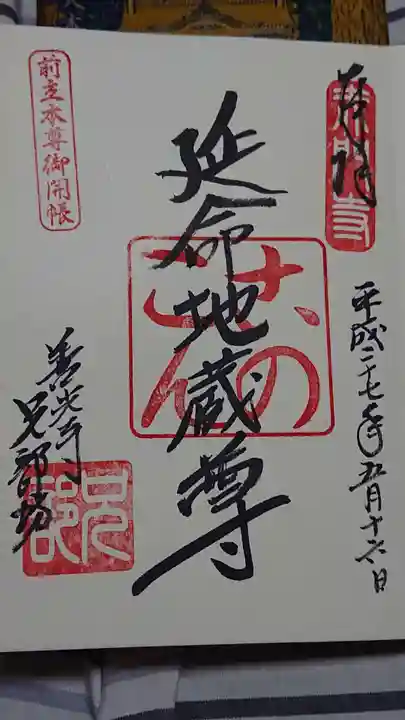 奉拝
平成二十七年五月十六日
延命地蔵尊
前立本尊御開帳
善光寺
兄部坊